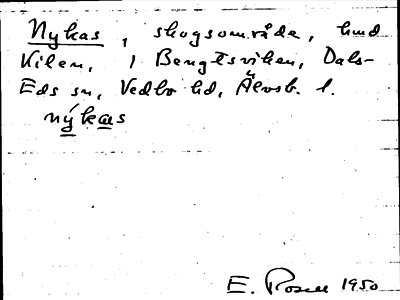 Nykas, skogsområde, hmd
Kilen, i Bengtsviken, Dals-
Eds sn, Vedbo hd, Älvsb. l.
nýkas
E. Rosell 1950